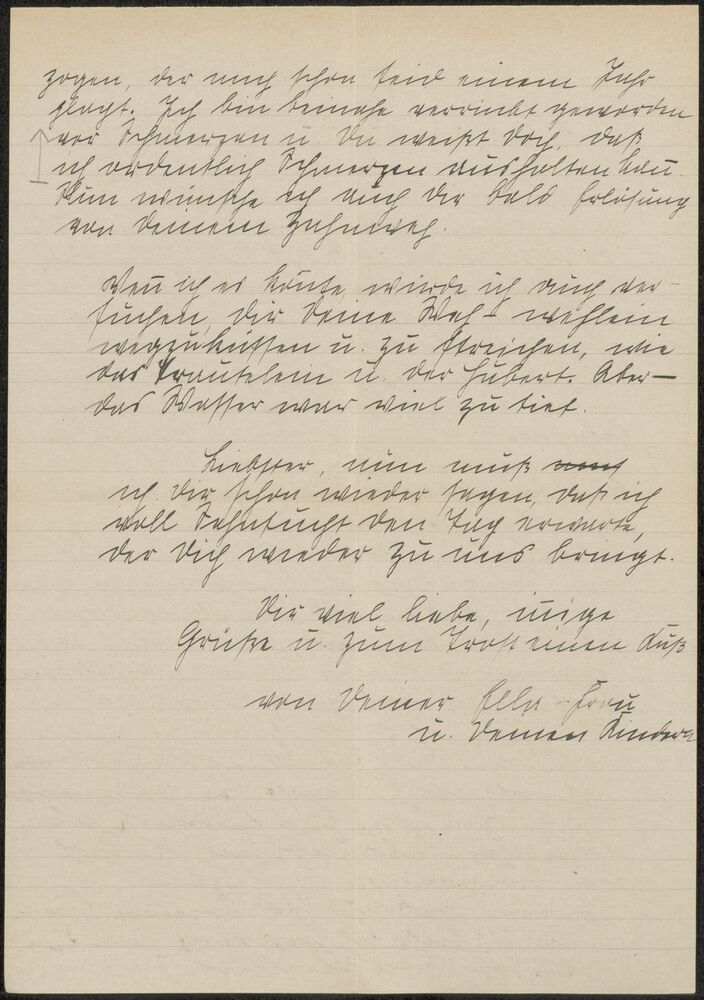 zogen, der mich schon seid einem Jahr
plagt. Ich bin beinahe verrückt geworden
vor Schmerzen u. Du weißt doch, daß
ich ordentlich Schmerzen aushalten kan̄.
Nun wünsche ich auch Dir bald Erlösung
von Deinem Zahnweh.
Wen̄ ich es kön̄te, würde ich auch ver-
suchen, Dir Deine Weh-
wegzuküssen u. zu streichen, wie
das Trautelein u. der Hubert. Aber —
das Wasser war viel zu tief.
Liebster, nun muß
ich Dir schon wieder sagen, daß ich
voll Sehnsucht den Tag erwarte,
der Dich wieder zu uns bringt.
Dir viel liebe, in̄ige
Grüße u. zum Trost einen Kuß
von Deiner Ella-Frau
u. Deinen Kindern